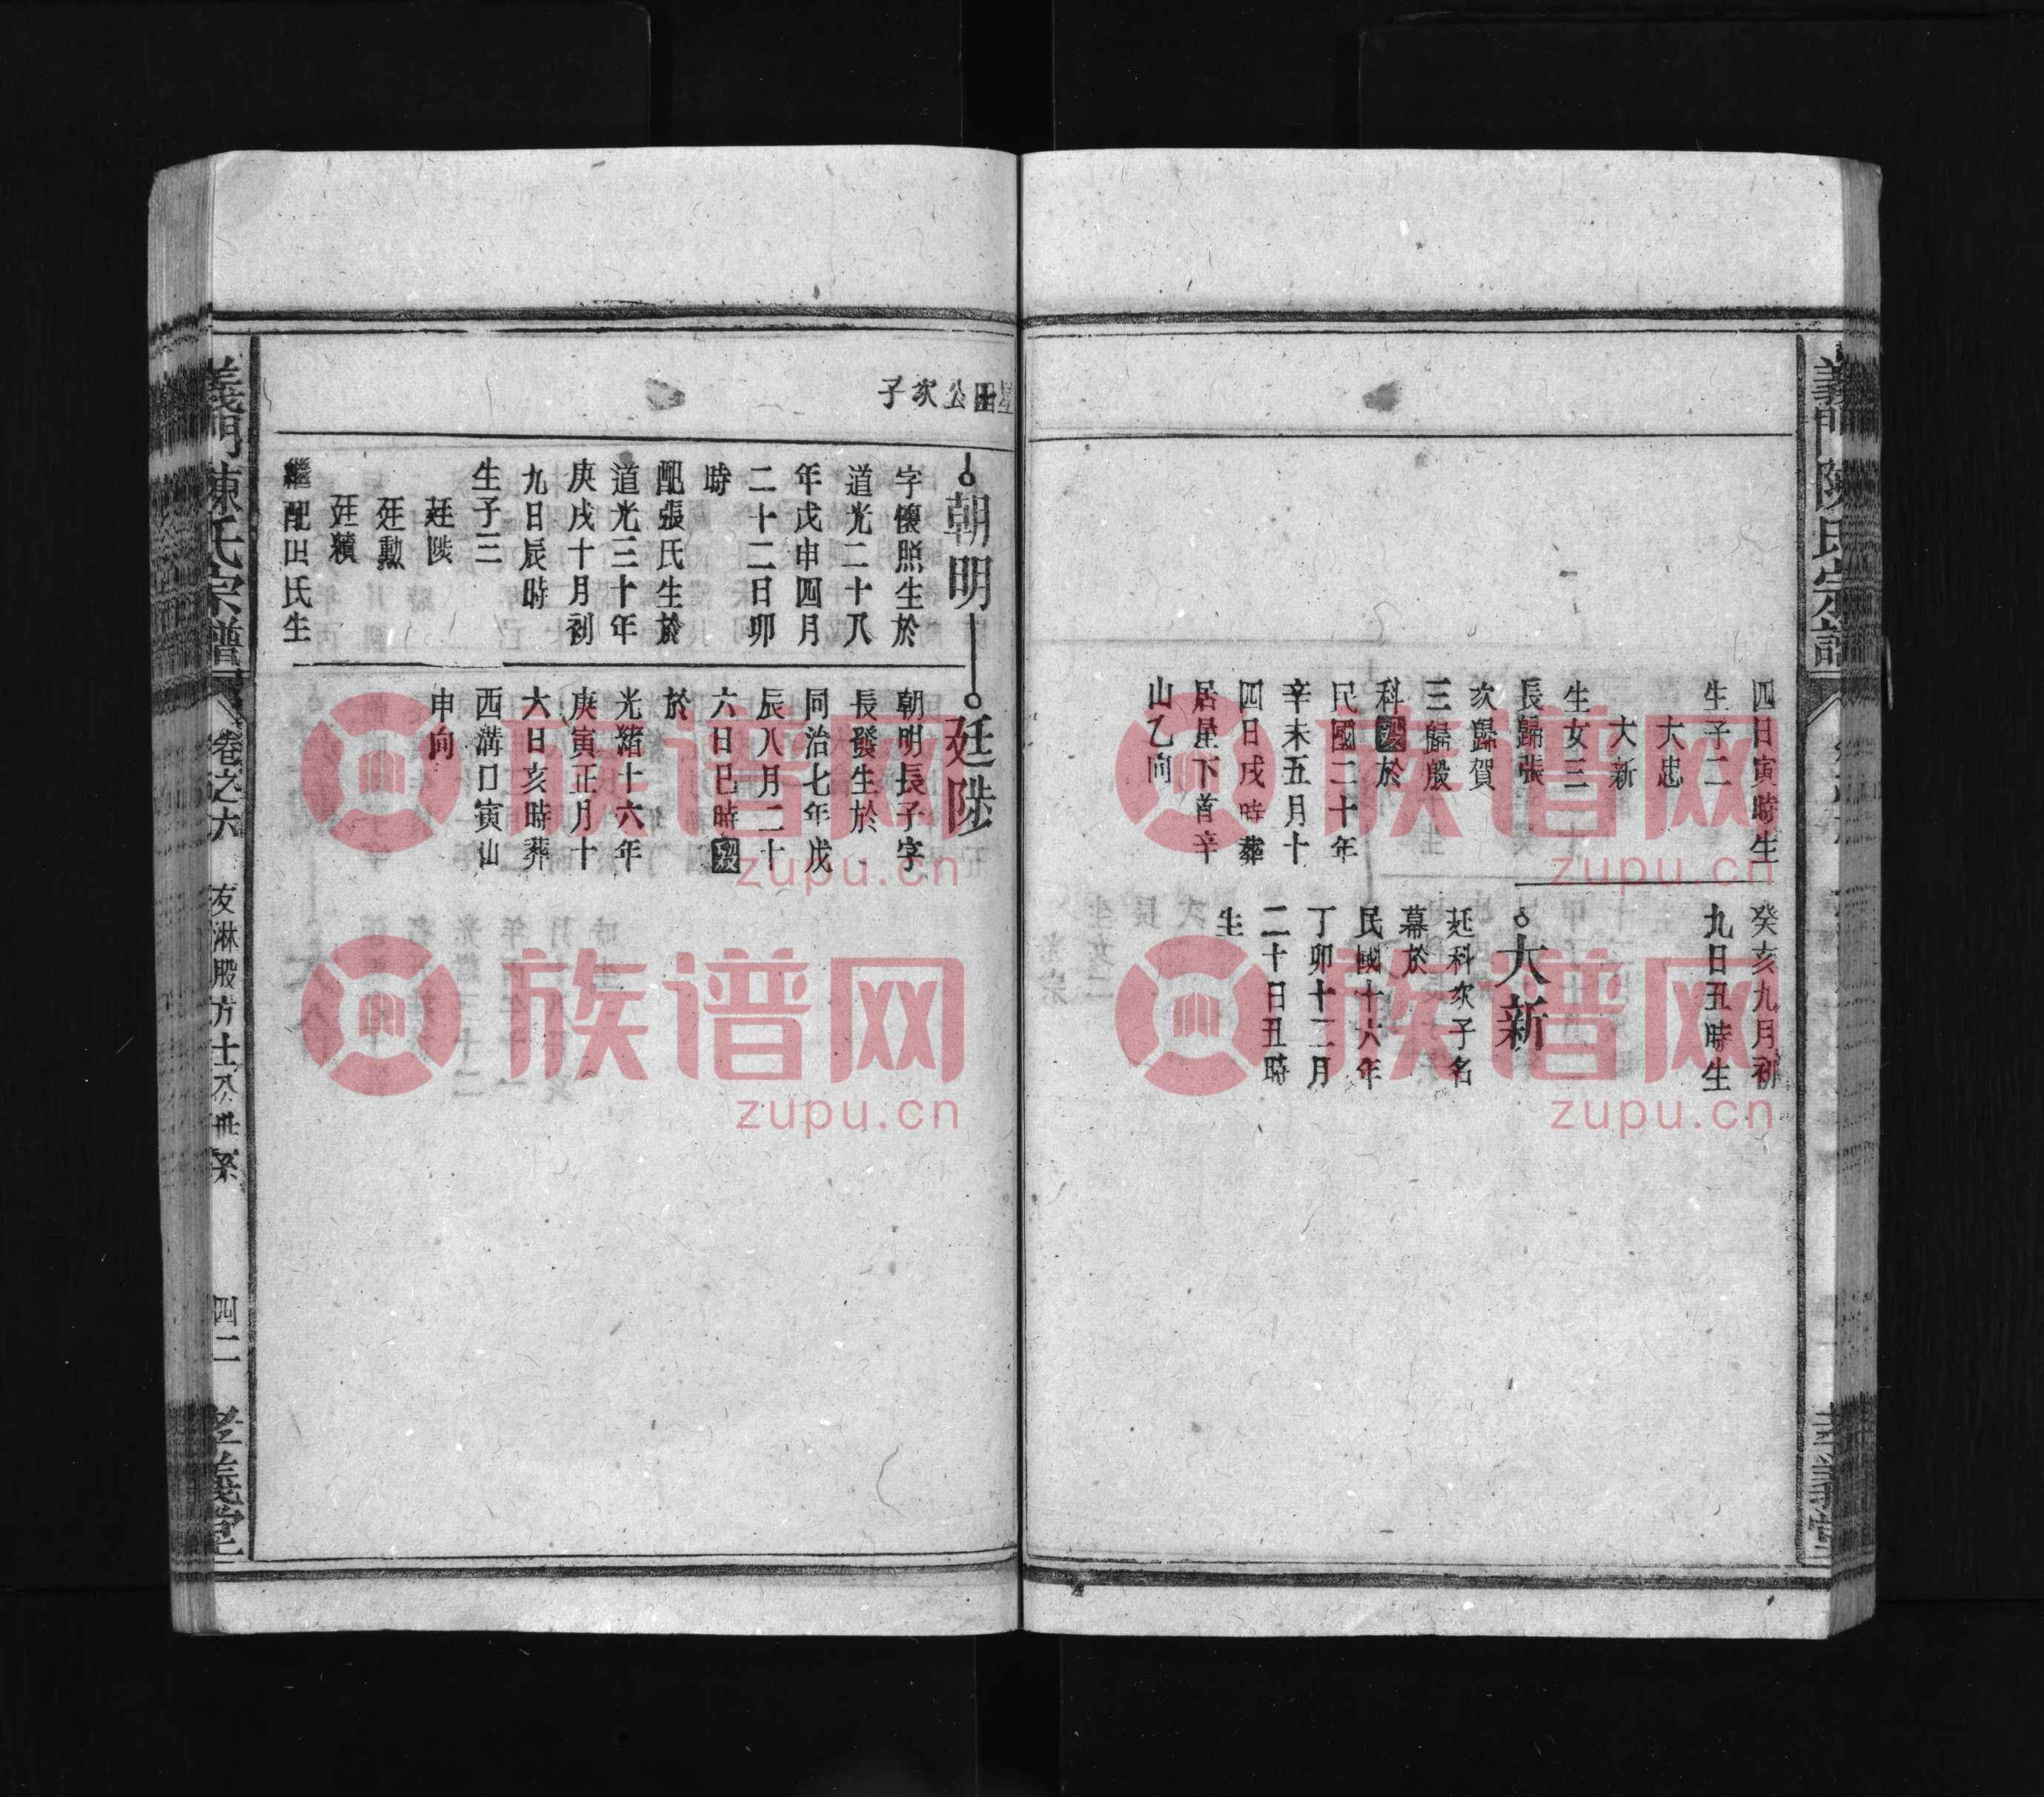 四日寅時生
生子二
大忠
大新
生女三
長歸張
次歸賀
三歸殷
科歿於
民國二十年
辛未五月十
四日戌時葬
居星下首辛
山乙向
癸亥九月初
九日丑時生
大新
廷科次子名
幕於
民國十六年
丁卯十二月
二十日丑時
生
公次子
朝明
字懷照生於
道光二十八
年戊申四月
二十二日卯
時
配張氏生於
道光三十年
庚戌十月初
九日辰時
生子三
廷陟
廷勳
廷積
繼配田氏生
廷陟
朝明長子字
長發生於
同治七年戊
辰八月二十
六日巳時歿
於
光緒十六年
庚寅正月十
六日亥時葬
西溝口寅山
申向
義門陳氏宗譜
卷之六
友淋股方士公世系
四二
孝義堂
義門陳氏宗譜
族谱网
zupu.cn
族谱网
zupu.cn
族谱网
zupu.cn
族谱网
zupu.cn